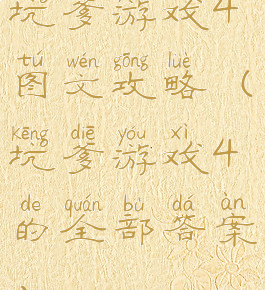 坑爹游戏4
tú wén gōng lüè
图文攻略（
kēng diē yóu xì
坑爹游戏4
de quán bù dá àn
的全部答案